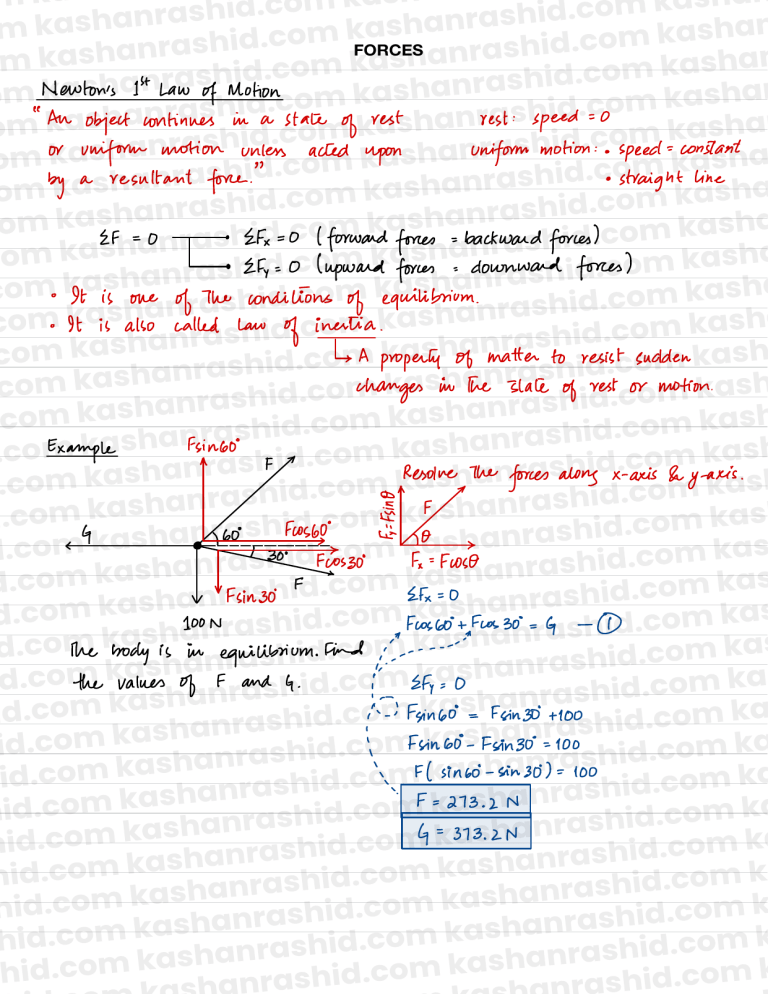 FORCES
Newton's 1st Law of Motion
"An object continues in a state of rest
or uniform motion unless acted upon
by a resultant force."
rest: speed = 0
uniform motion: • speed = constant
• straight line
ΣF = 0
• ΣFx = 0 (forward forces = backward forces)
• ΣFy = 0 (upward forces = downward forces)
• It is one of the conditions of equilibrium.
• It is also called law of inertia.
↳ A property of matter to resist sudden
changes in the state of rest or motion.
Example
Fsin60°
F
G
60°
Fcos60°
30°
Fcos30°
Fsin30°
F
100 N
The body is in equilibrium. Find
the values of F and G.
Resolve the forces along x-axis & y-axis.
Fy = Fsinθ
F
θ
Fx = Fcosθ
ΣFx = 0
Fcos60° + Fcos30° = G — ①
ΣFy = 0
Fsin60° = Fsin30° + 100
Fsin60° - Fsin30° = 100
F(sin60° - sin30°) = 100
F = 273.2 N
G = 373.2 N
kashanrashid.com